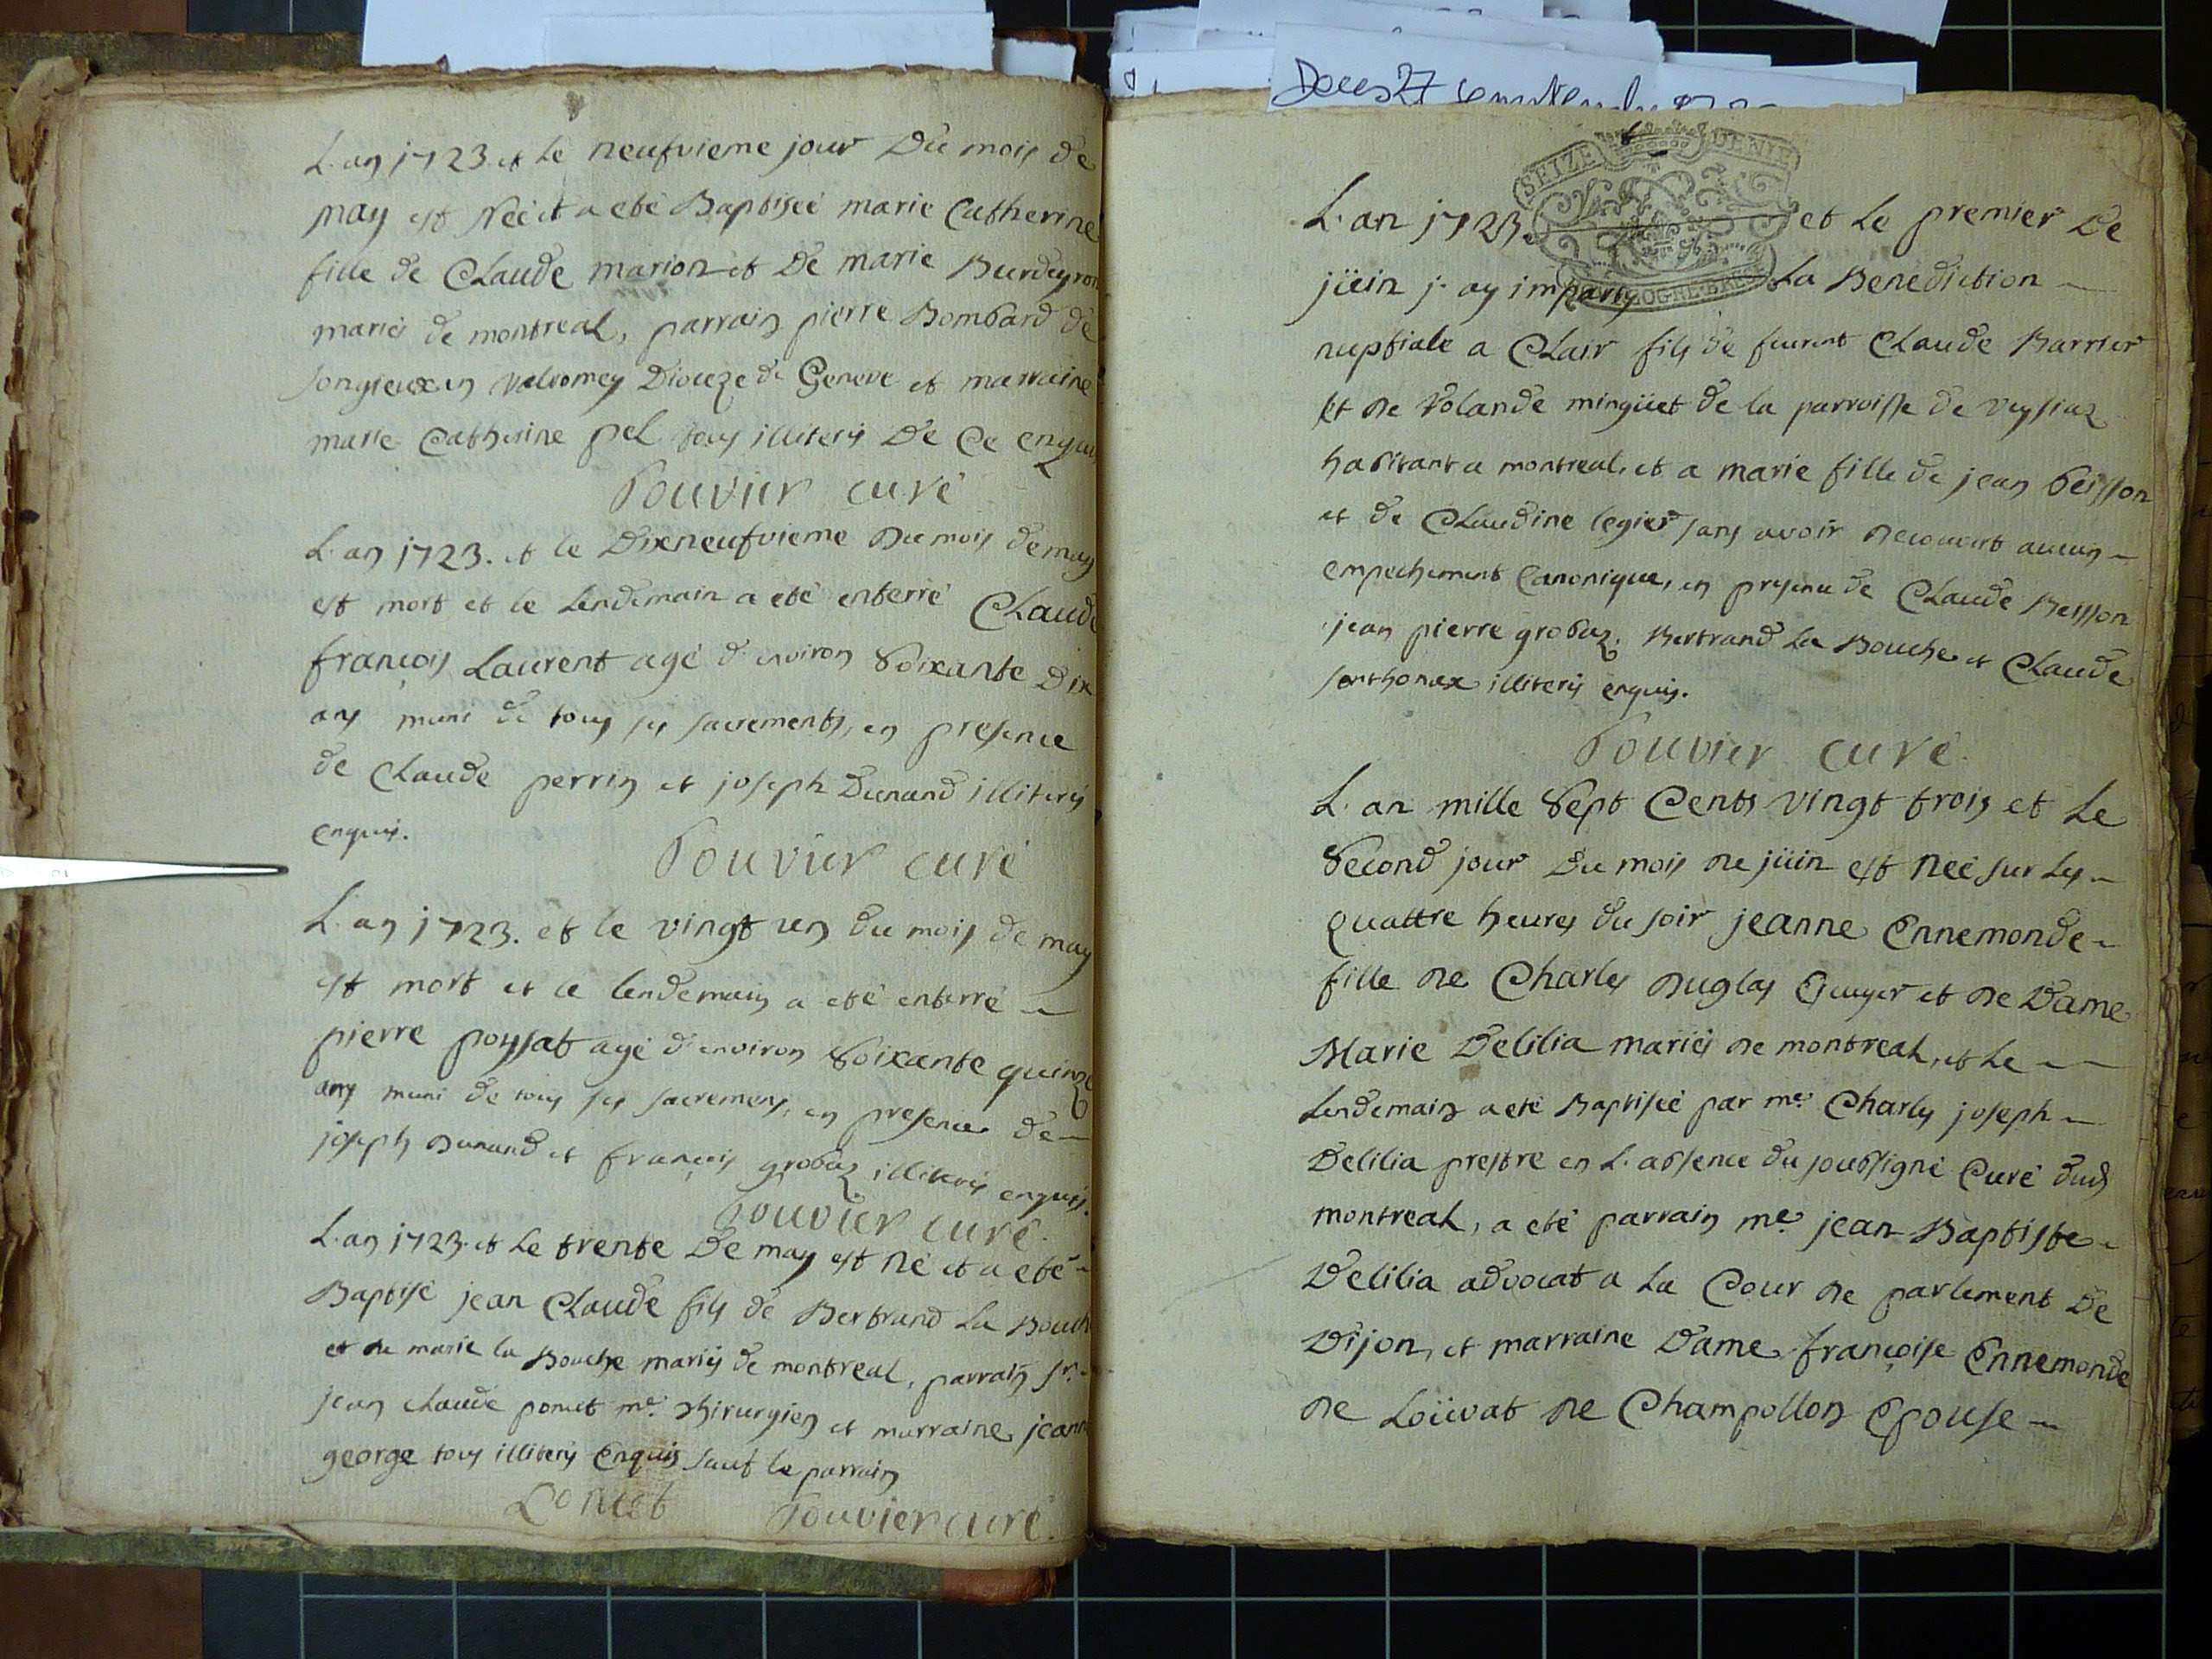 L'an 1723. et le neufvieme jour Du mois de
may est Neé et a eté Baptiseé marie Catherine
fille de Claude marion et De marie Burdeyron
mariés de montreal, parrain pierre Bombard de
songieux en valromey Dioceze de Geneve et marraine
marie Catherine pel tous illiterés De Ce enquis
Pouvier curé
L'an 1723. et le Dixneufvieme Du mois de may
est mort et le Lendemain a eté enterré Claude
françois Laurent agé d'environ Soixante Dix
ans muni de tous ses sacrements, en presence
de Claude perrin et joseph Dunand illiterés
enquis.
Pouvier curé
L'an 1723. et le vingt un du mois de may
est mort et le lendemain a eté enterré
pierre poysat agé d'environ Soixante quinze
ans muni de tous ses sacremens, en presence de
joseph Dunand et françois grobaz illiterés enquis.
Pouvier curé.
L'an 1723. et Le trente De may est Né et a eté
Baptisé jean Claude fils de Bertrand La Bouche
et de marie la Bouche mariés de montreal, parrain sr.
jean claude ponet me. chirurgien et marraine jeanne
george tous illiterés Enquis sauf le parrain
Ponet Pouvier curé.
Deces 27
SEIZE DENIE
L'an 1723. et Le premier De
jüin j'ay imparty La Benediction
nuptiale a Clair fils de feurent Claude Barrier
et de Yolande mingüet de la parroisse de veysiaz
habitant a montreal, et a marie fille de jean beisson
et de Claudine legier sans avoir decouvert aucun
empechement Canonique, en presence de Claude Beisson
jean pierre grobaz. Bertrand La Bouche et Claude
sonthonax illiterés enquis.
Pouvier curé.
L'an mille Sept Cents vingt trois et Le
Second jour Du mois de jüin est Neé sur Les
quattre heures du soir jeanne Ennemonde
fille de Charles Duglas Ecuyer et de Dame
Marie Delilia mariés de montreal, et Le
Lendemain a eté Baptiseé par me. Charles joseph
Delilia prestre en L'absence du soubsigné Curé dud
montreal, a eté parrain me. jean Baptiste
Delilia advocat a La Cour de parlement De
Dijon, et marraine Dame françoise Ennemonde
de Loüvat de Champollon Epouse